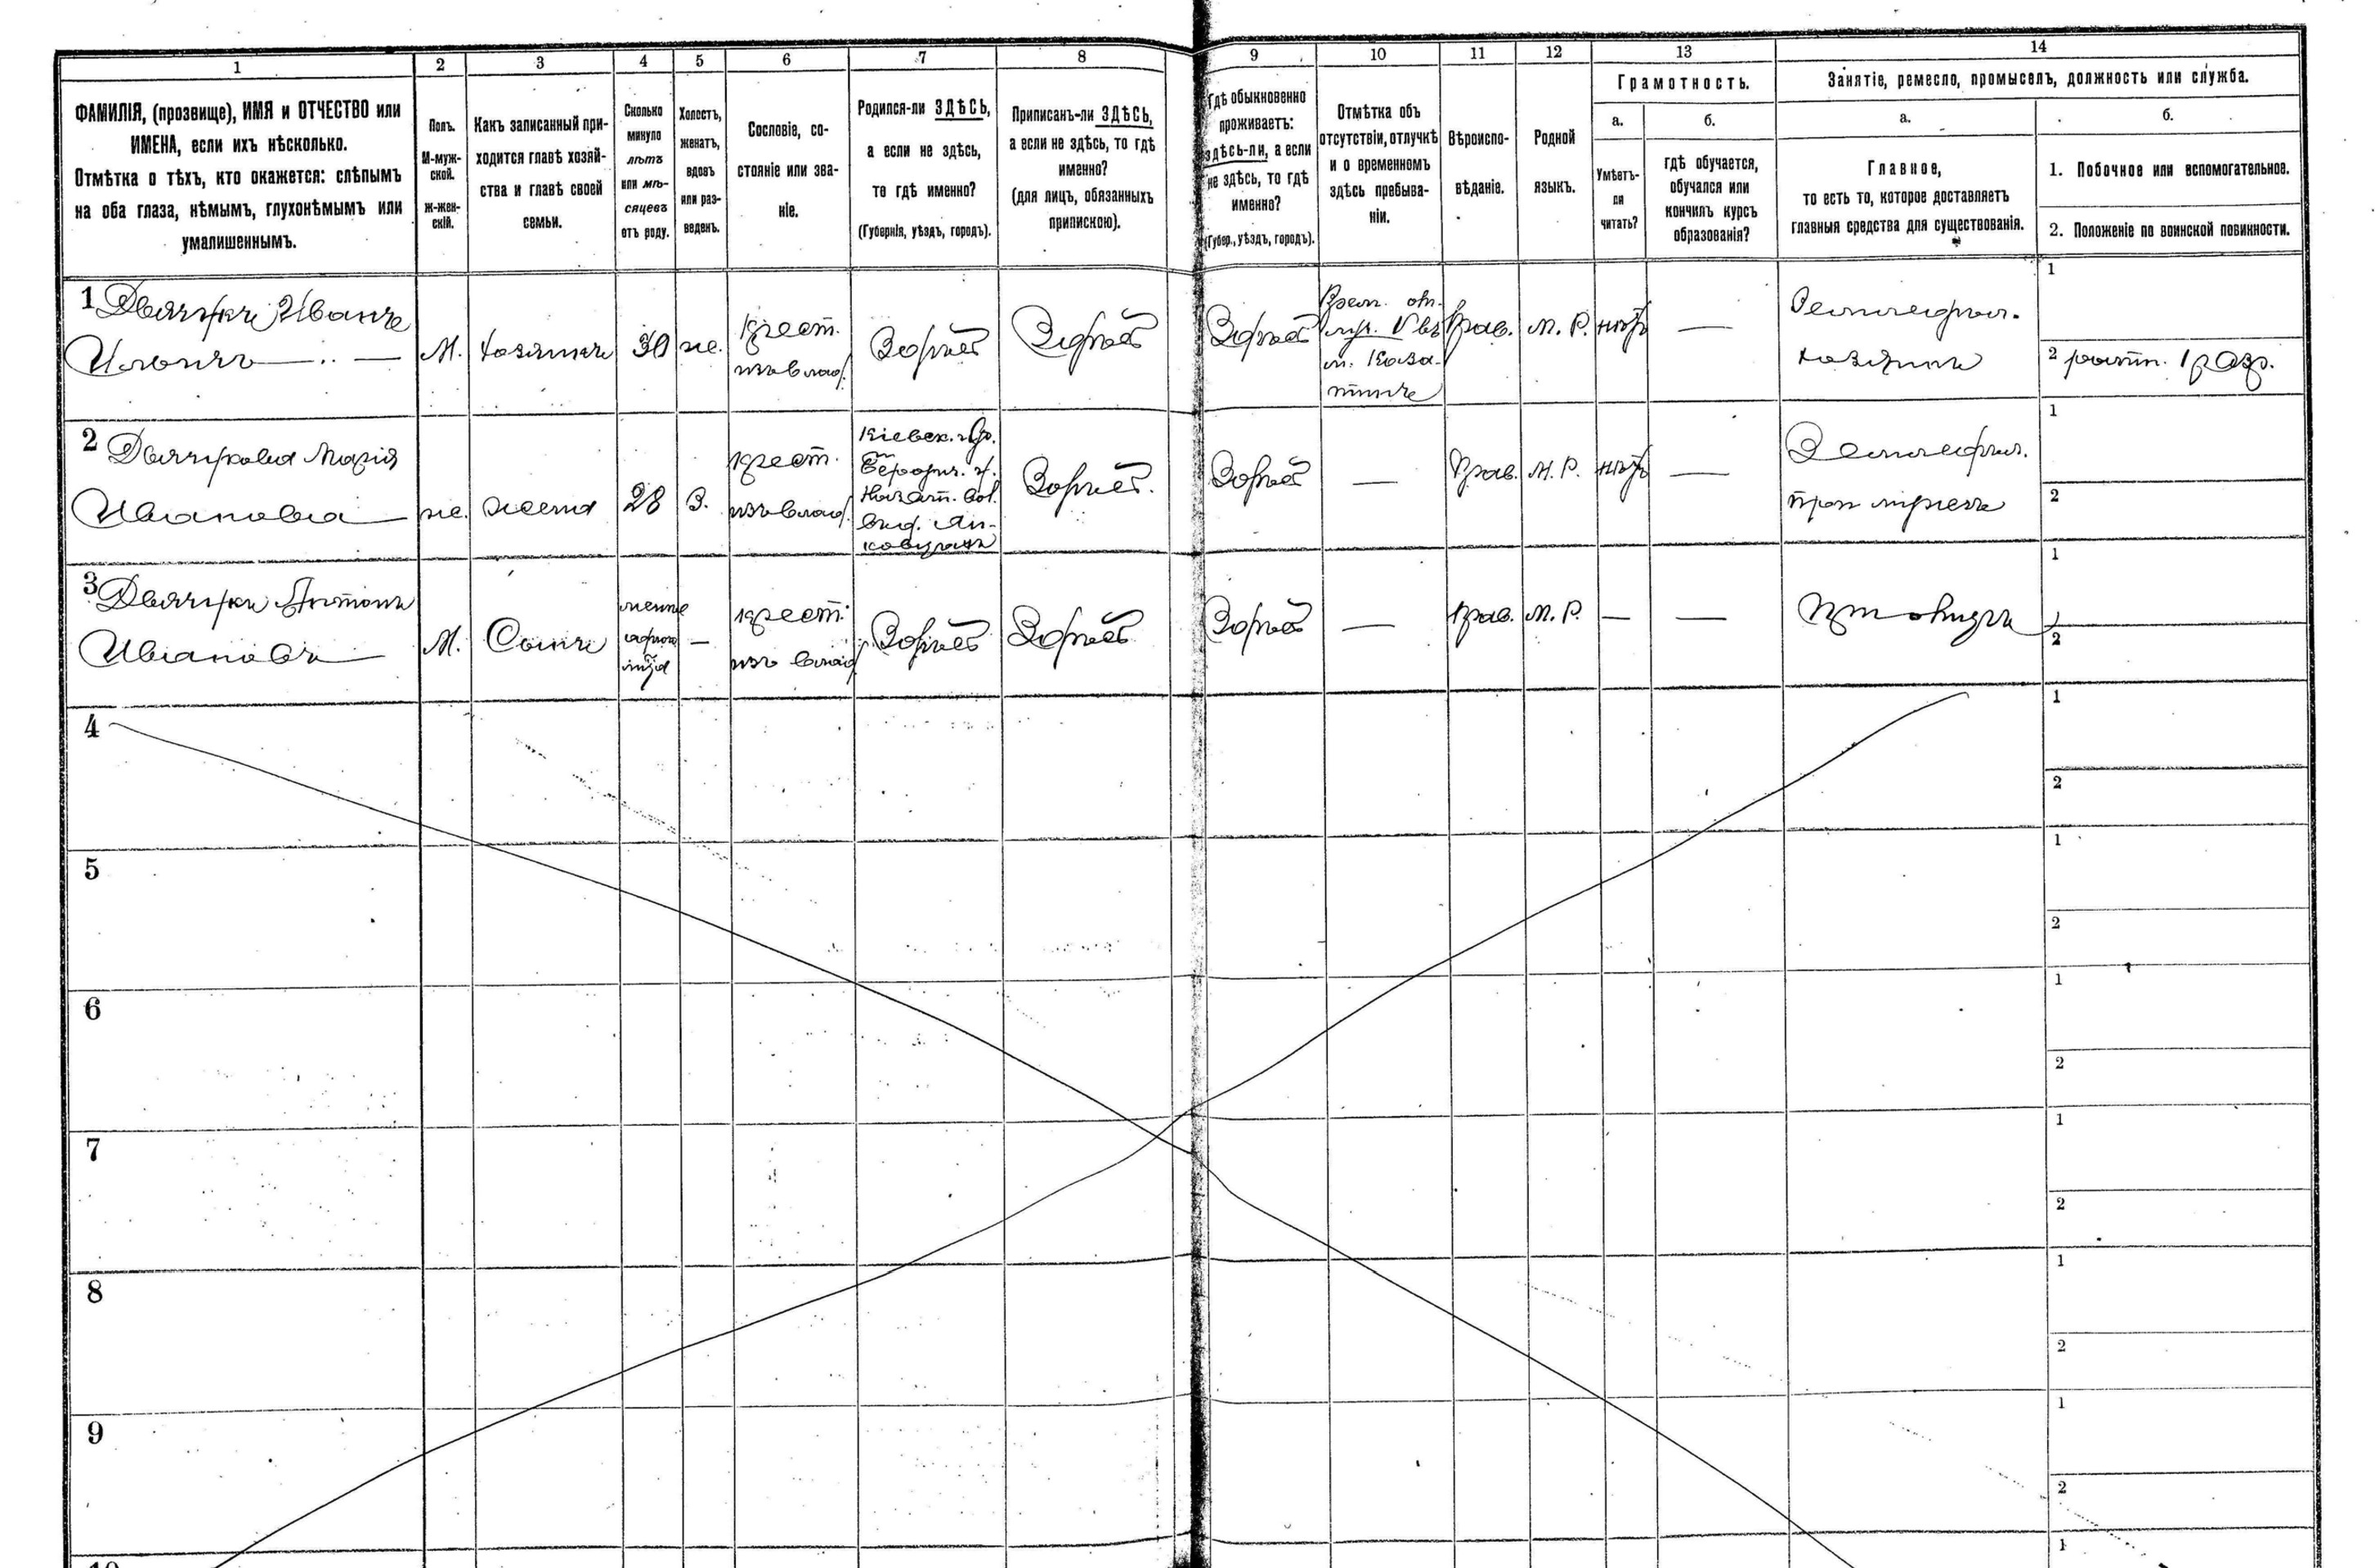 1 2 3 4 5 6 7 8 9 10 11 12 13 14
ФАМИЛІЯ, (прозвище), ИМЯ и ОТЧЕСТВО или
ИМЕНА, если ихъ нѣсколько.
Отмѣтка о тѣхъ, кто окажется: слѣпымъ
на оба глаза, нѣмымъ, глухонѣмымъ или
умалишеннымъ.
Полъ.
М-муж-
ской.
ж-жен-
скій.
Какъ записанный при-
ходится главѣ хозяй-
ства и главѣ своей
семьи.
Сколько
минуло
лѣтъ
или мѣ-
сяцевъ
отъ роду.
Холостъ,
женатъ,
вдовъ
или раз-
веденъ.
Сословіе, со-
стояніе или зва-
ніе.
Родился-ли ЗДѢСЬ,
а если не здѣсь,
то гдѣ именно?
(Губернія, уѣздъ, городъ).
Приписанъ-ли ЗДѢСЬ,
а если не здѣсь, то гдѣ
именно?
(для лицъ, обязанныхъ
припискою).
Гдѣ обыкновенно
проживаетъ:
здѣсь-ли, а если
не здѣсь, то гдѣ
именно?
(Губер., уѣздъ, городъ).
Отмѣтка объ
отсутствіи, отлучкѣ
и о временномъ
здѣсь пребыва-
ніи.
Вѣроиспо-
вѣданіе.
Родной
языкъ.
Грамотность.
а.
Умѣетъ-
ли
читать?
б.
гдѣ обучается,
обучался или
кончилъ курсъ
образованія?
Занятіе, ремесло, промыселъ, должность или служба.
а.
Главное,
то есть то, которое доставляетъ
главныя средства для существованія.
б.
1. Побочное или вспомогательное.
2. Положеніе по воинской повинности.
1 Иванъ
М. хозяинъ 30 ж.
крест.
изъ влад.
Здѣсь
Здѣсь
Здѣсь
Прав. М. Р. нѣтъ —
Земледѣл.
хозяинъ
1
2 ратн. 1 раз.
2 Марія
Иванова
ж. жена 28 З.
крест.
изъ влад.
Кіевск. губ.
Здѣсь.
Здѣсь
—
Прав. М. Р. нѣтъ —
Земледѣл.
при мужѣ
1
2
3 Антонъ
Ивановъ
М. Сынъ
менѣе
—
крест.
изъ влад.
Здѣсь
Здѣсь
Здѣсь
—
Прав. М. Р. — —
при отцѣ
1
2
4
1
2
5
1
2
6
1
2
7
1
2
8
1
2
9
1
2
1